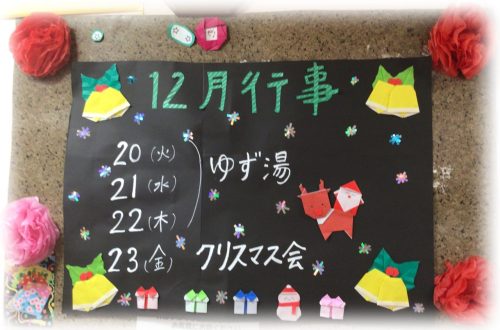 12月行事
20(火)
21(水) ゆず湯
22(木)
23(金) クリスマス会